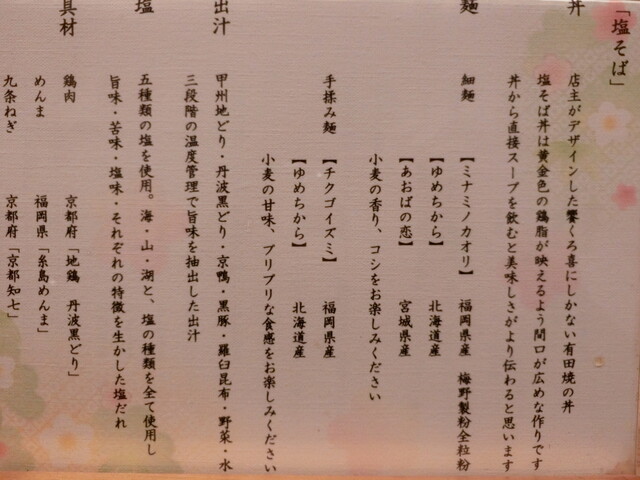 「塩そば」
丼
店主がデザインした饗くろ喜にしかない有田焼の丼
塩そば丼は黄金色の鶏脂が映えるよう間口が広めな作りです
丼から直接スープを飲むと美味しさがより伝わると思います
麺
細麺 【ミナミノカオリ】 福岡県産 梅野製粉全粒粉
【ゆめちから】 北海道産
【あおばの恋】 宮城県産
小麦の香り、コシをお楽しみください
手揉み麺 【チクゴイズミ】 福岡県産
【ゆめちから】 北海道産
小麦の甘味、プリプリな食感をお楽しみください
出汁
甲州地どり・丹波黒どり・京鴨・黒豚・羅臼昆布・野菜・水
三段階の温度管理で旨味を抽出した出汁
塩
五種類の塩を使用。海・山・湖と、塩の種類を全て使用し
旨味・苦味・塩味・それぞれの特徴を生かした塩だれ
具材
鶏肉 京都府「地鶏 丹波黒どり」
めんま 福岡県「糸島めんま」
九条ねぎ 京都府「京都知七」